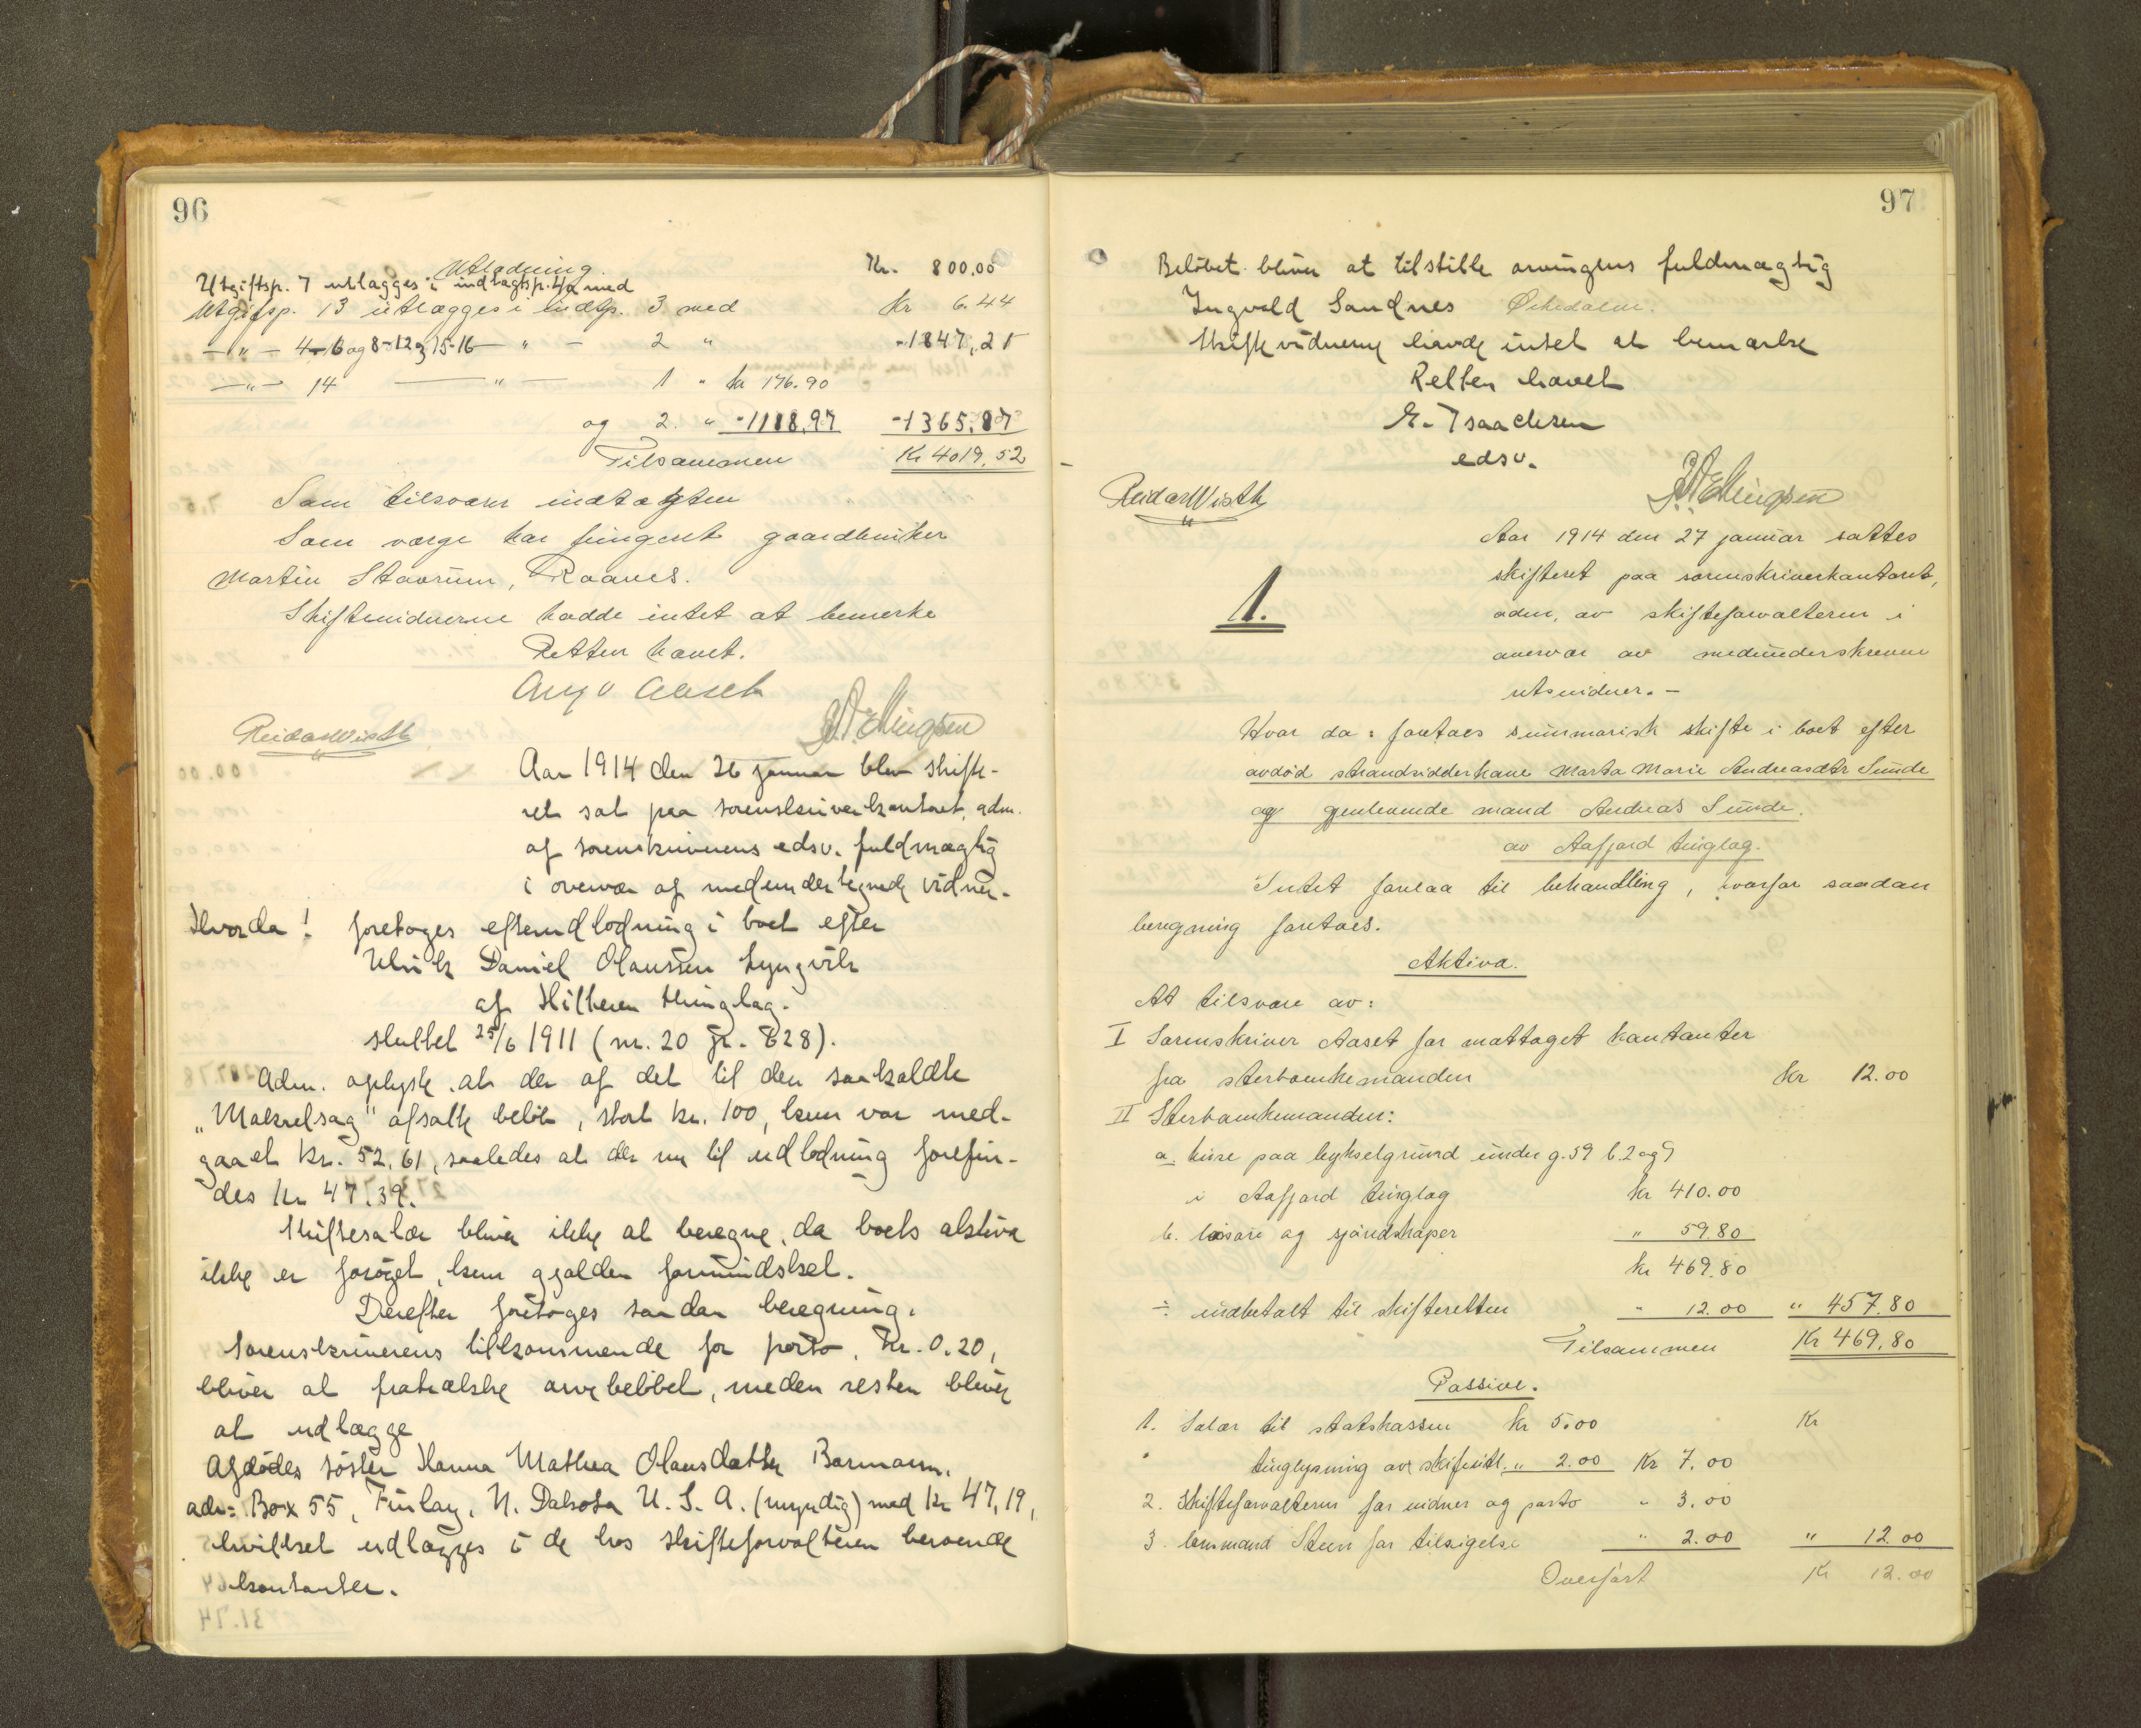 96
Utlodning.
Utgiftsp. 7 utlægges i indtægtsp. 1/2 med Kr. 800.00
Utgiftsp. 13 utlægges i indtp. 3 med Kr 6.44
-"- 4-6 og 8-12 og 15-16 -"- 2 " -1847,21
-"- 14 -"- 1 " kr 176.90
og 2. " -1188,97 -1365,87
Tilsammen Kr 4019,52
Som tilsvarer indtægten
Som værge har fungeret gaardbruker
Martin Stavrum, Raanes.
Skiftevidnerne hadde intet at bemerke
Retten hævet.
Aug v Aasen
Reidar Wisth
Aar 1914 den 26 januar blev skifte-
ret sat paa sorenskriverkontoret, adm.
af sorenskriverens edsv. fuldmægtig
i overvær af medundertegnede vidner.
Hvorda! foretoges efterudlodning i boet efter
Ulrik Daniel Olaussen Lyngvik
af Hitteren thinglag.
sluttet 25/6 1911 (nr. 20 pr. 828).
Adm. oplyste at der af det til den saakaldte
"Makrelsag" afsatte beløb, stort kr. 100, kun var med-
gaaet kr. 52,61, saaledes at der nu til udlodning forefin-
des kr 47.39.
Skiftesalær bliver ikke at beregne, da boets aktiva
ikke er forøget, kun gjælden formindsket.
Derefter foretoges saadan beregning.
Sorenskriverens tilkommende for porto, kr. 0.20,
bliver at fratrække arvebeløbet, meden resten bliver
at udlægge
Afdødes søster Hanna Mathea Olausdatter Barmann,
adr: Box 55, Finlay, N. Dakota U. S. A. (myndig) med kr 47,19,
hvilket udlægges i de hos skifteforvalteren beroende
kontanter.
97
Beløbet bliver at tilstille arvingens fuldmægtig
Ingvald Sandnes Örkedalen.
Skiftevidnerne havde intet at bemærke
Retten hævet
E. Isaachsen
edsv.
Reidar Wisth
Aar 1914 den 27 januar sattes
skifteret paa sorenskriverkontoret,
adm. av skifteforvalteren i
overvær av medunderskrevne
retsvidner. -
1.
Hvor da: foretoes summarisk skifte i boet efter
avdød strandsidderkone Marta Marie Andreasdtr Sunde
og gjenlevende mand Andreas Sunde.
av Aafjord tinglag.
Intet forelaa til behandling, hvorfor saadan
beregning foretoes.
Aktiva.
At tilsvare av:
I Sorenskriver Aaset for mottaget kontanter
fra sterbaenkemanden Kr 12.00
II Sterbaenkemanden:
a. huse paa bykselgrund under g. 59 b. 2 og 9
i Aafjord tinglag kr 410.00
b. løsøre og sjøredskaper " 59.80
kr 469.80
÷ indbetalt til skifteretten " 12.00 " 457.80
Tilsammen Kr 469.80
Passiva.
1. Salær til statskassen kr 5.00 Kr
" tinglysning av skifteutl. " 2.00 Kr 7.00
2. Skifteforvalteren for vidner og porto " 3.00
3. lensmand Steen for tilsigelse " 2.00 " 12.00
Overført Kr 12.00